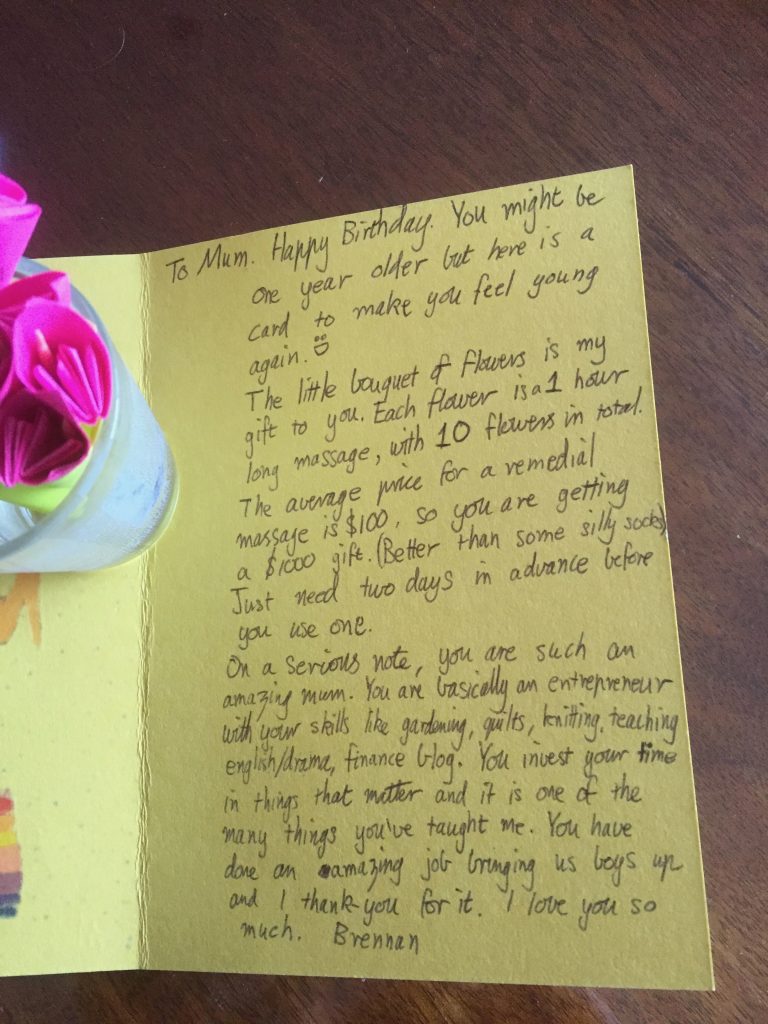 To Mum. Happy Birthday. You might be
one year older but here is a
card to make you feel young
again.
The little bouquet of flowers is my
gift to you. Each flower is a 1 hour
long massage, with 10 flowers in total.
The average price for a remedial
massage is $100, so you are getting
a $1000 gift. (Better than some silly socks)
Just need two days in advance before
you use one.
On a serious note, you are such an
amazing mum. You are basically an entrepreneur
with your skills like gardening, quilts, knitting, teaching
english/drama, finance blog. You invest your time
in things that matter and it is one of the
many things you've taught me. You have
done an amazing job bringing us boys up
and I thank you for it. I love you so
much. Brennan